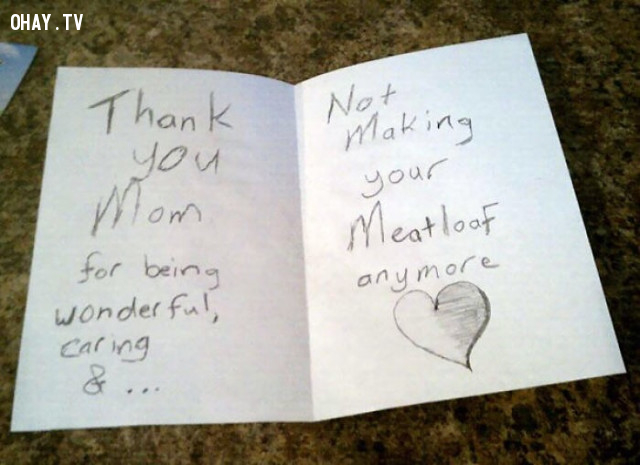 OHAY.TV
Thank
you
Mom
for being
wonderful,
caring
& ...
Not
Making
your
Meatloaf
anymore